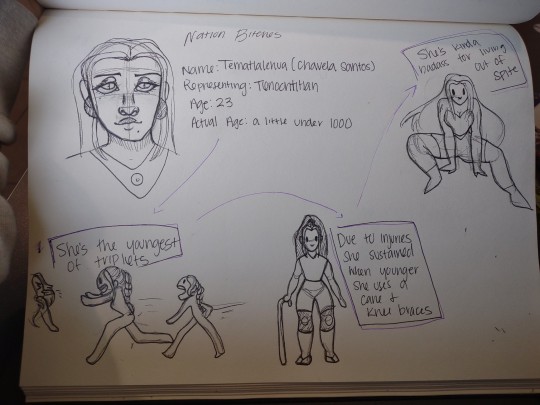 Nation Bitches
Name: Tematlalehua (Chavela Santos)
Representing: Tenochtitlan
Age: 23
Actual Age: a little under 1000
She's the youngest
of triplets
Due to injuries
she sustained
when younger
she uses a
cane &
knee braces
She's kinda
badass for living
out of
spite